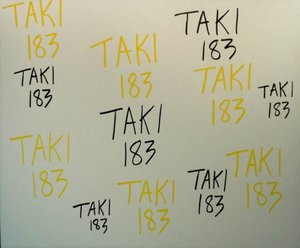 TAKI
183
TAKI
183
TAKI
183
TAKI
183
TAKI
183
TAKI
183
TAKI
183
TAKI
183
TAKI
183
TAKI
183
TAKI
183
TAKI
183